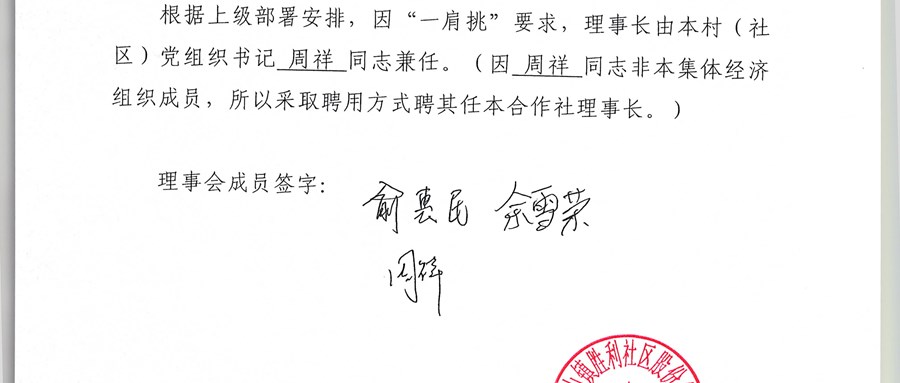 根据上级部署安排，因“一肩挑”要求，理事长由本村（社
区）党组织书记 周祥 同志兼任。（因 周祥 同志非本集体经济
组织成员，所以采取聘用方式聘其任本合作社理事长。）
理事会成员签字：
俞惠民 余雪荣
周祥
镇胜利社区股份